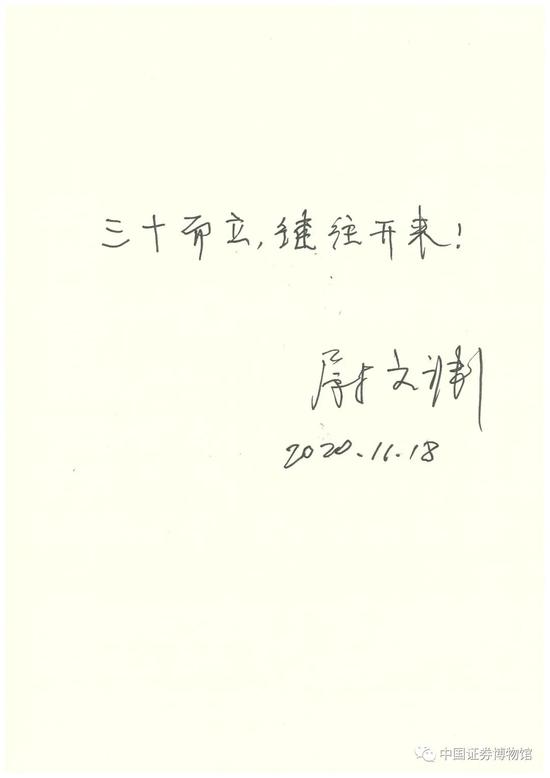 三十而立,继往开来!
尉文渊
2020.11.18
中国证券博物馆